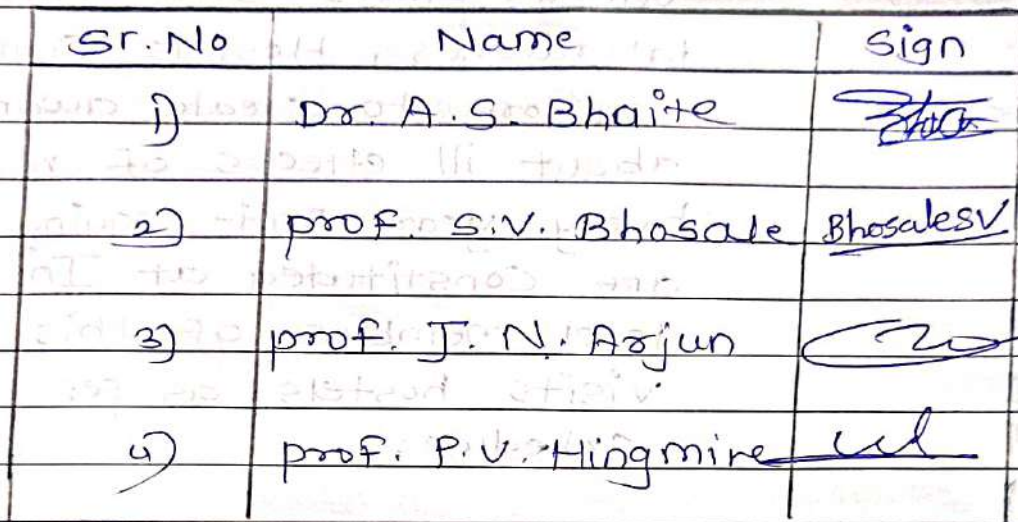 Sr. No Name Sign
1) Dr. A. S. Bhaite
2) prof. S.V. Bhosale BhosaleSV
3) prof. J. N. Arjun
4) prof. P.V. Hingmire